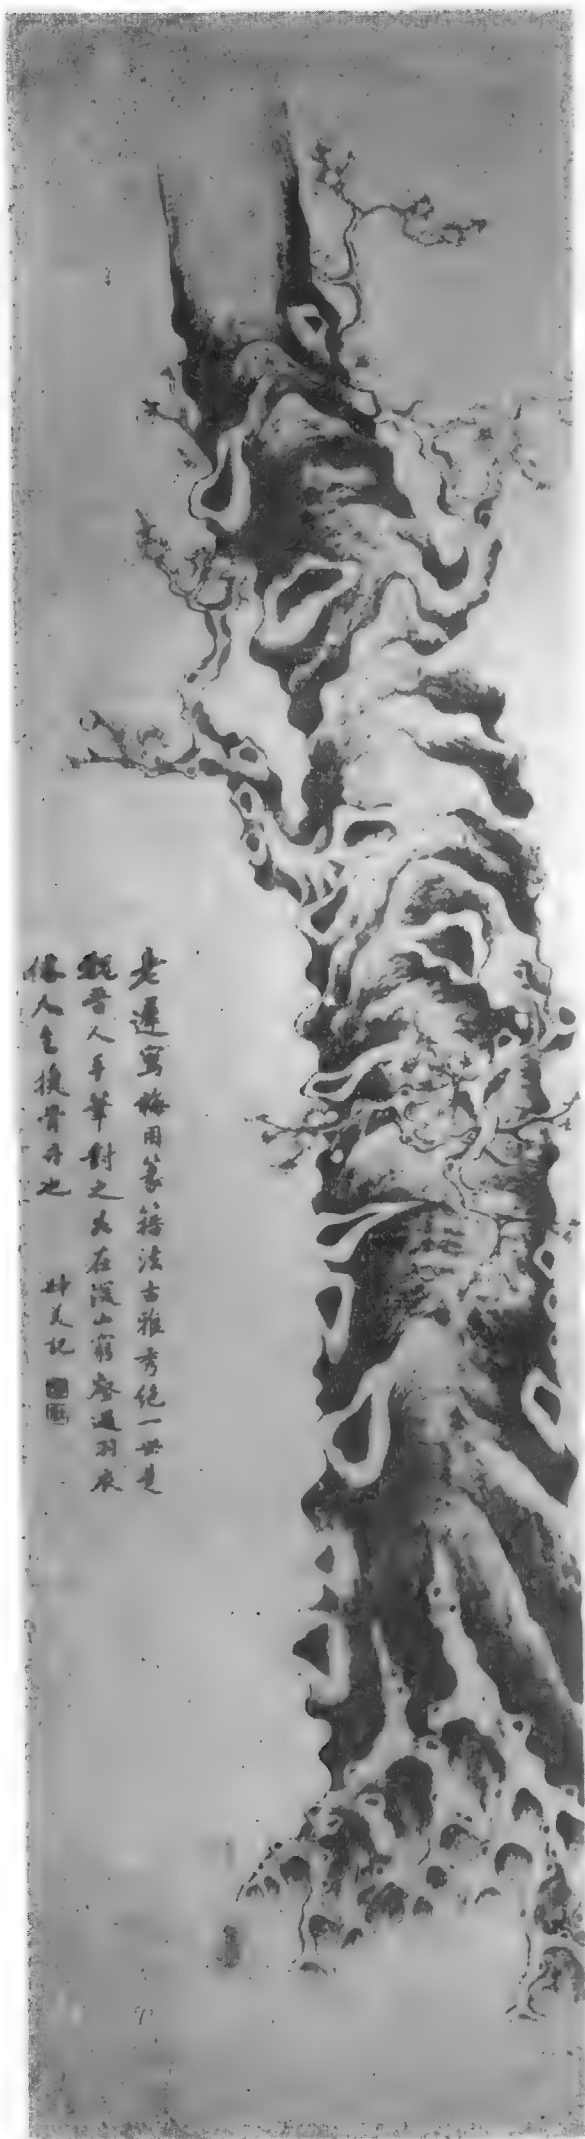 老蓮寫梅用篆籀法古雅秀絕一世是
觀晉人手筆對之如在深山窮壑遇羽衣
人乞換骨丹也
叔美記